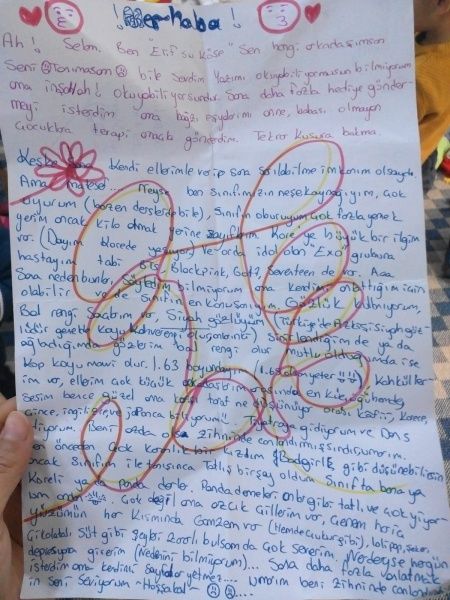 Mer-haba!
Ah! Selam. Ben "Elif su köse" Sen hangi arkadaşımsın
Seni Tanımasam bile sevdim Yazımı okuyabiliyormusun bilmiyorum
ama inşallah! okuyabiliyorsundur. Sana daha fazla hediye gönder-
meyi isterdim ama bazı eşyalarımı anne, babası olmayan
çocuklara terapi amaçlı gönderdim. Tekrar kusura bakma.
Keşke sana kendi ellerimle verip sana sarılabilme imkanım olsaydı.
Ama malesef... Neyse ben sınıfımızın neşe kaynağıyım, çok
uyurum (bazen derslerde bile), Sınıfın oburuyum çok fazla yemek
yerim ancak kilo almak yerine zayıflarım. Kore'ye büyük bir ilgim
var. (Dayım orada yaşıyor) ve orda idol olan "Exo" grubuna
hastayım tabi BTS, Blackpink, Got7, Seventeen de var. Ama
Sana neden bunları söyledim bilmiyorum ama kendimi anlattığım için
olabilir ve de Sınıfın en konuşanıyım. Gözlük kullanıyorum,
Bal rengi saçlarım var. Siyah gözlüyüm (Türkiye'de
genelde koyu kahverengi Sinirlendiğim de ya da
ağladığımda gözlerim bal rengi olur mutlu olduğumda ise
kop koyu mavi olur. 1.63 boyundayım Kahküller-
im var, ellerim çok küçük arkadaşlarım arasında en küçüğü bende
Sesim bence güzel ama karşı taraf ne düşünüyor orası Korece
ingilizce ve japonca biliyorum Tiyatroya gidiyorum ve Dans
ediyorum. Beni orda zihninde canlandırmışsındır umarım.
en önceden çok karanlık bir kızdım (Badgirl gibi düşünebilirsin
ancak Sınıfım ile tanışınca tatlış birşey oldum. Sınıfta bana ya
Koreli ya da Panda derler. Panda demeleri gibi tatlı, ve çok yiyor-
çok değil ama azcık çillerim var, çenem hariç
yüzümün her kısmında Gamzem var (Hemde çukur gibi), lolipop, şeker
Çikolatalı Süt gibi şeyleri bulsam da çok severim. Neredeyse hergün
depresyona girerim (Nedenini bilmiyorum)... Sana daha fazla anlatmak
isterdim ama kendimi sayfalar yetmez... Umarım beni zihninde canlandırmış-
Seni Seviyorum ~Hoşçakal~